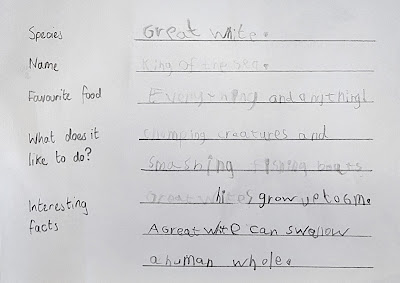 Species Great white.
Name King of the sea.
Favourite food Everything and anything!
What does it chomping creatures and
like to do? smashing fishing boats
Great whites grow up to 6m.
Interesting
facts A Great wite can swallow
a human whole.